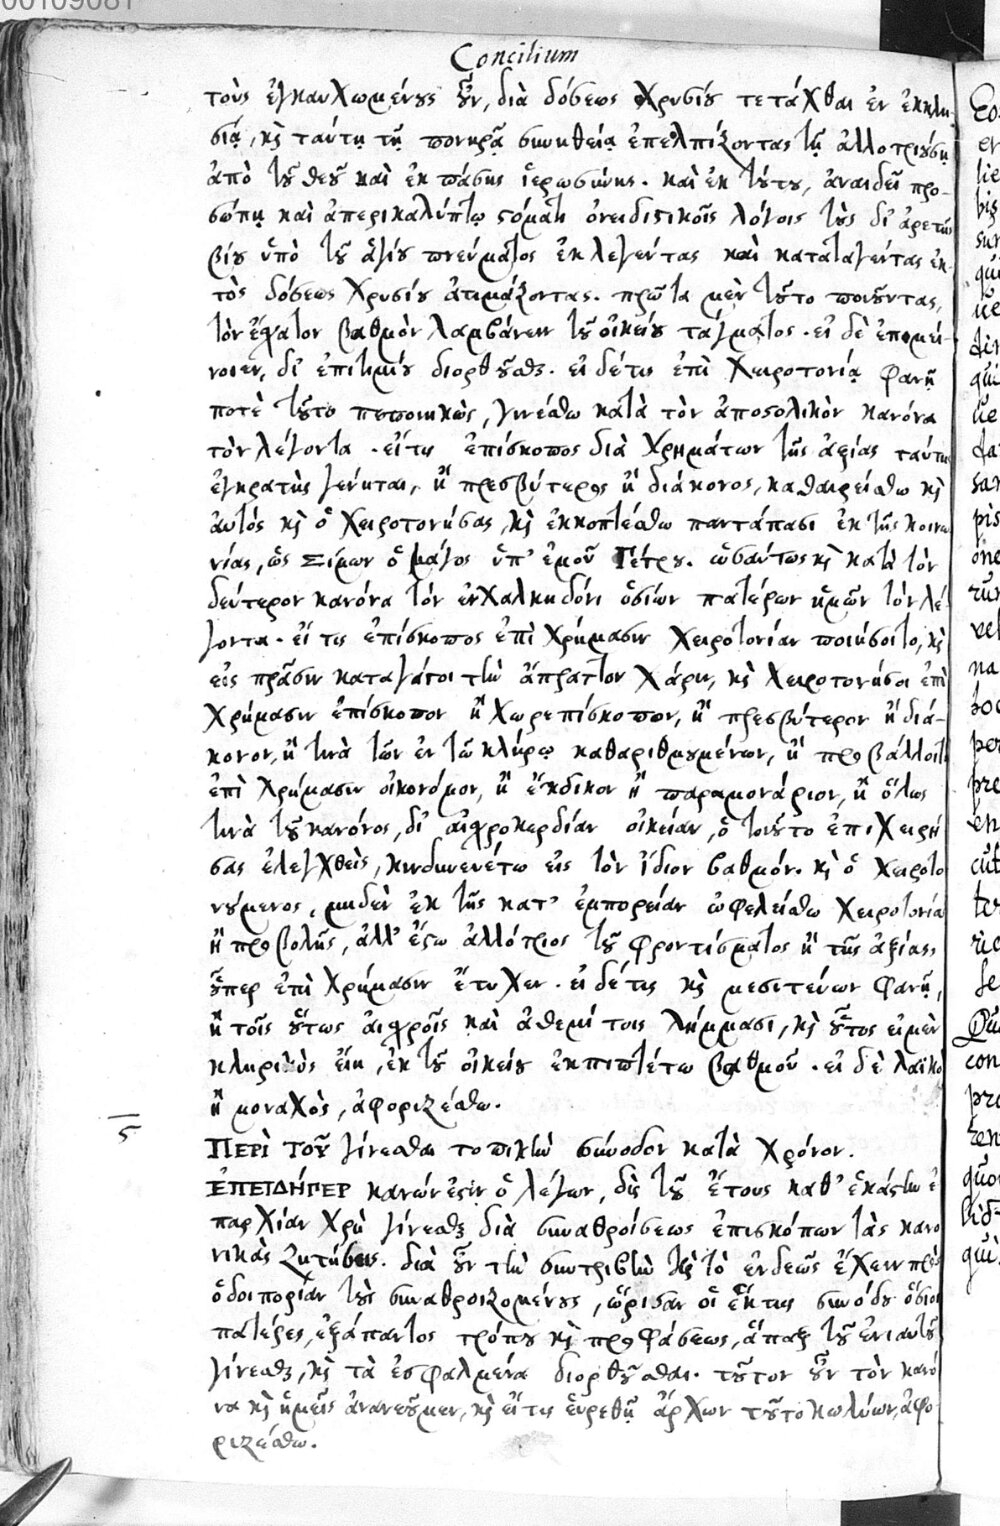 00109081
Concilium
τοὺς ἐγκαυχωμένους οὖν, διὰ δόσεως χρυσίου τετάχθαι ἐν ἐκκλη-
σίᾳ, κỳ ταύτῃ τῇ πονηρᾷ συνηθείᾳ ἐπελπίζοντας τῇ ἀλλοτριούσῃ
ἀπὸ τοῦ θεοῦ καὶ ἐκ πάσης ἱερωσύνης. καὶ ἐκ τούτου, ἀναιδεῖ προ-
σώπῳ καὶ ἀπερικαλύπτῳ στόματι ὀνειδιστικοῖς λόγοις τοὺς δι' ἀρετὴν
βίου ὑπὸ τοῦ ἁγίου πνεύματος ἐκλεγέντας καὶ καταταγέντας ἐκ-
τὸς δόσεως χρυσίου ἀτιμάζοντας. πρῶτα μὲν τοῦτο ποιοῦντας,
τὸν ἔσχατον βαθμὸν λαμβάνειν τοῦ οἰκείου τάγματος. εἰ δὲ ἐπιμεί-
νοιεν, δι' ἐπιτιμίου διορθοῦσθαι. εἰ δέ τις ἐπὶ χειροτονίᾳ φανῇ
ποτὲ τοῦτο πεποιηκὼς, γινέσθω κατὰ τὸν ἀποστολικὸν κανόνα
τὸν λέγοντα. εἴ τις ἐπίσκοπος διὰ χρημάτων τῆς ἀξίας ταύτης
ἐγκρατὴς γένηται, ἢ πρεσβύτερος ἢ διάκονος, καθαιρείσθω καὶ
αὐτὸς καὶ ὁ χειροτονήσας, καὶ ἐκκοπτέσθω παντάπασι ἐκ τῆς κοινω
νίας, ὡς Σίμων ὁ μάγος ὑπ' ἐμοῦ Πέτρου. ὡσαύτως καὶ κατὰ τὸν
δεύτερον κανόνα τὸν ἐν Χαλκηδόνι ὁσίων πατέρων ἡμῶν τὸν λέ-
γοντα. εἴ τις ἐπίσκοπος ἐπὶ χρήμασιν χειροτονίαν ποιήσοιτο, καὶ
εἰς πρᾶσιν καταγάγοι τὴν ἄπρατον χάριν, καὶ χειροτονήσοι ἐπὶ
χρήμασιν ἐπίσκοπον ἢ χωρεπίσκοπον, ἢ πρεσβύτερον ἢ διά-
κονον, ἢ τινὰ τῶν ἐν τῷ κλήρῳ καθαριθμουμένων, ἢ προβάλλοιτο
ἐπὶ χρήμασιν οἰκονόμον, ἢ ἔκδικον ἢ παραμονάριον, ἢ ὅλως
τινὰ τοῦ κανόνος, δι' αἰσχροκερδίαν οἰκείαν, ὁ τοιοῦτο ἐπιχειρή
σας ἐλεγχθεὶς, κινδυνευέτω εἰς τὸν ἴδιον βαθμόν. καὶ ὁ χειροτο
νούμενος, μηδὲν ἐκ τῆς κατ' ἐμπορείαν ὠφελείσθω χειροτονία
ἢ προβολῆς, ἀλλ' ἔστω ἀλλότριος τοῦ φροντίσματος ἢ τῆς ἀξίας,
οὗπερ ἐπὶ χρήμασιν ἔτυχεν. εἰ δέ τις καὶ μεσιτεύων φανῇ,
ἢ τοῖς οὕτως αἰσχροῖς καὶ ἀθεμίτοις λήμμασι, καὶ οὗτος εἰ μὲν
κληρικὸς εἴη, ἐκ τοῦ οἰκείου ἐκπιπτέτω βαθμοῦ. εἰ δὲ λαϊκὸ
ἢ μοναχὸς, ἀφοριζέσθω.
ς
ΠΕΡῚ ΤΟΥ͂ γίνεσθαι τοπικὴν σύνοδον κατὰ χρόνον.
ἘΠΕΙΔΉΠΕΡ κανών ἐστιν ὁ λέγων, δὶς τοῦ ἔτους καθ' ἑκάστην ἐ
παρχίαν χρὴ γίνεσθαι διὰ συναθροίσεως ἐπισκόπων τὰς κανο
νικὰς ζητήσεις. διὰ οὖν τὴν συντριβὴν καὶ τὸ ἐνδεῶς ἔχειν πρὸς
ὁδοιπορίαν τοὺς συναθροιζομένους, ὥρισαν οἱ ἕκτης συνόδου ὅσιοι
πατέρες, ἐξάπαντος τρόπου καὶ προφάσεως, ἅπαξ τοῦ ἐνιαυτοῦ
γίνεσθαι, καὶ τὰ ἐσφαλμένα διορθοῦσθαι. τοῦτον οὖν τὸν κανό
να καὶ ἡμεῖς ἀνανεοῦμεν, καὶ εἴ τις εὑρεθῇ ἄρχων τοῦτο κωλύων, ἀφο
ριζέσθω.